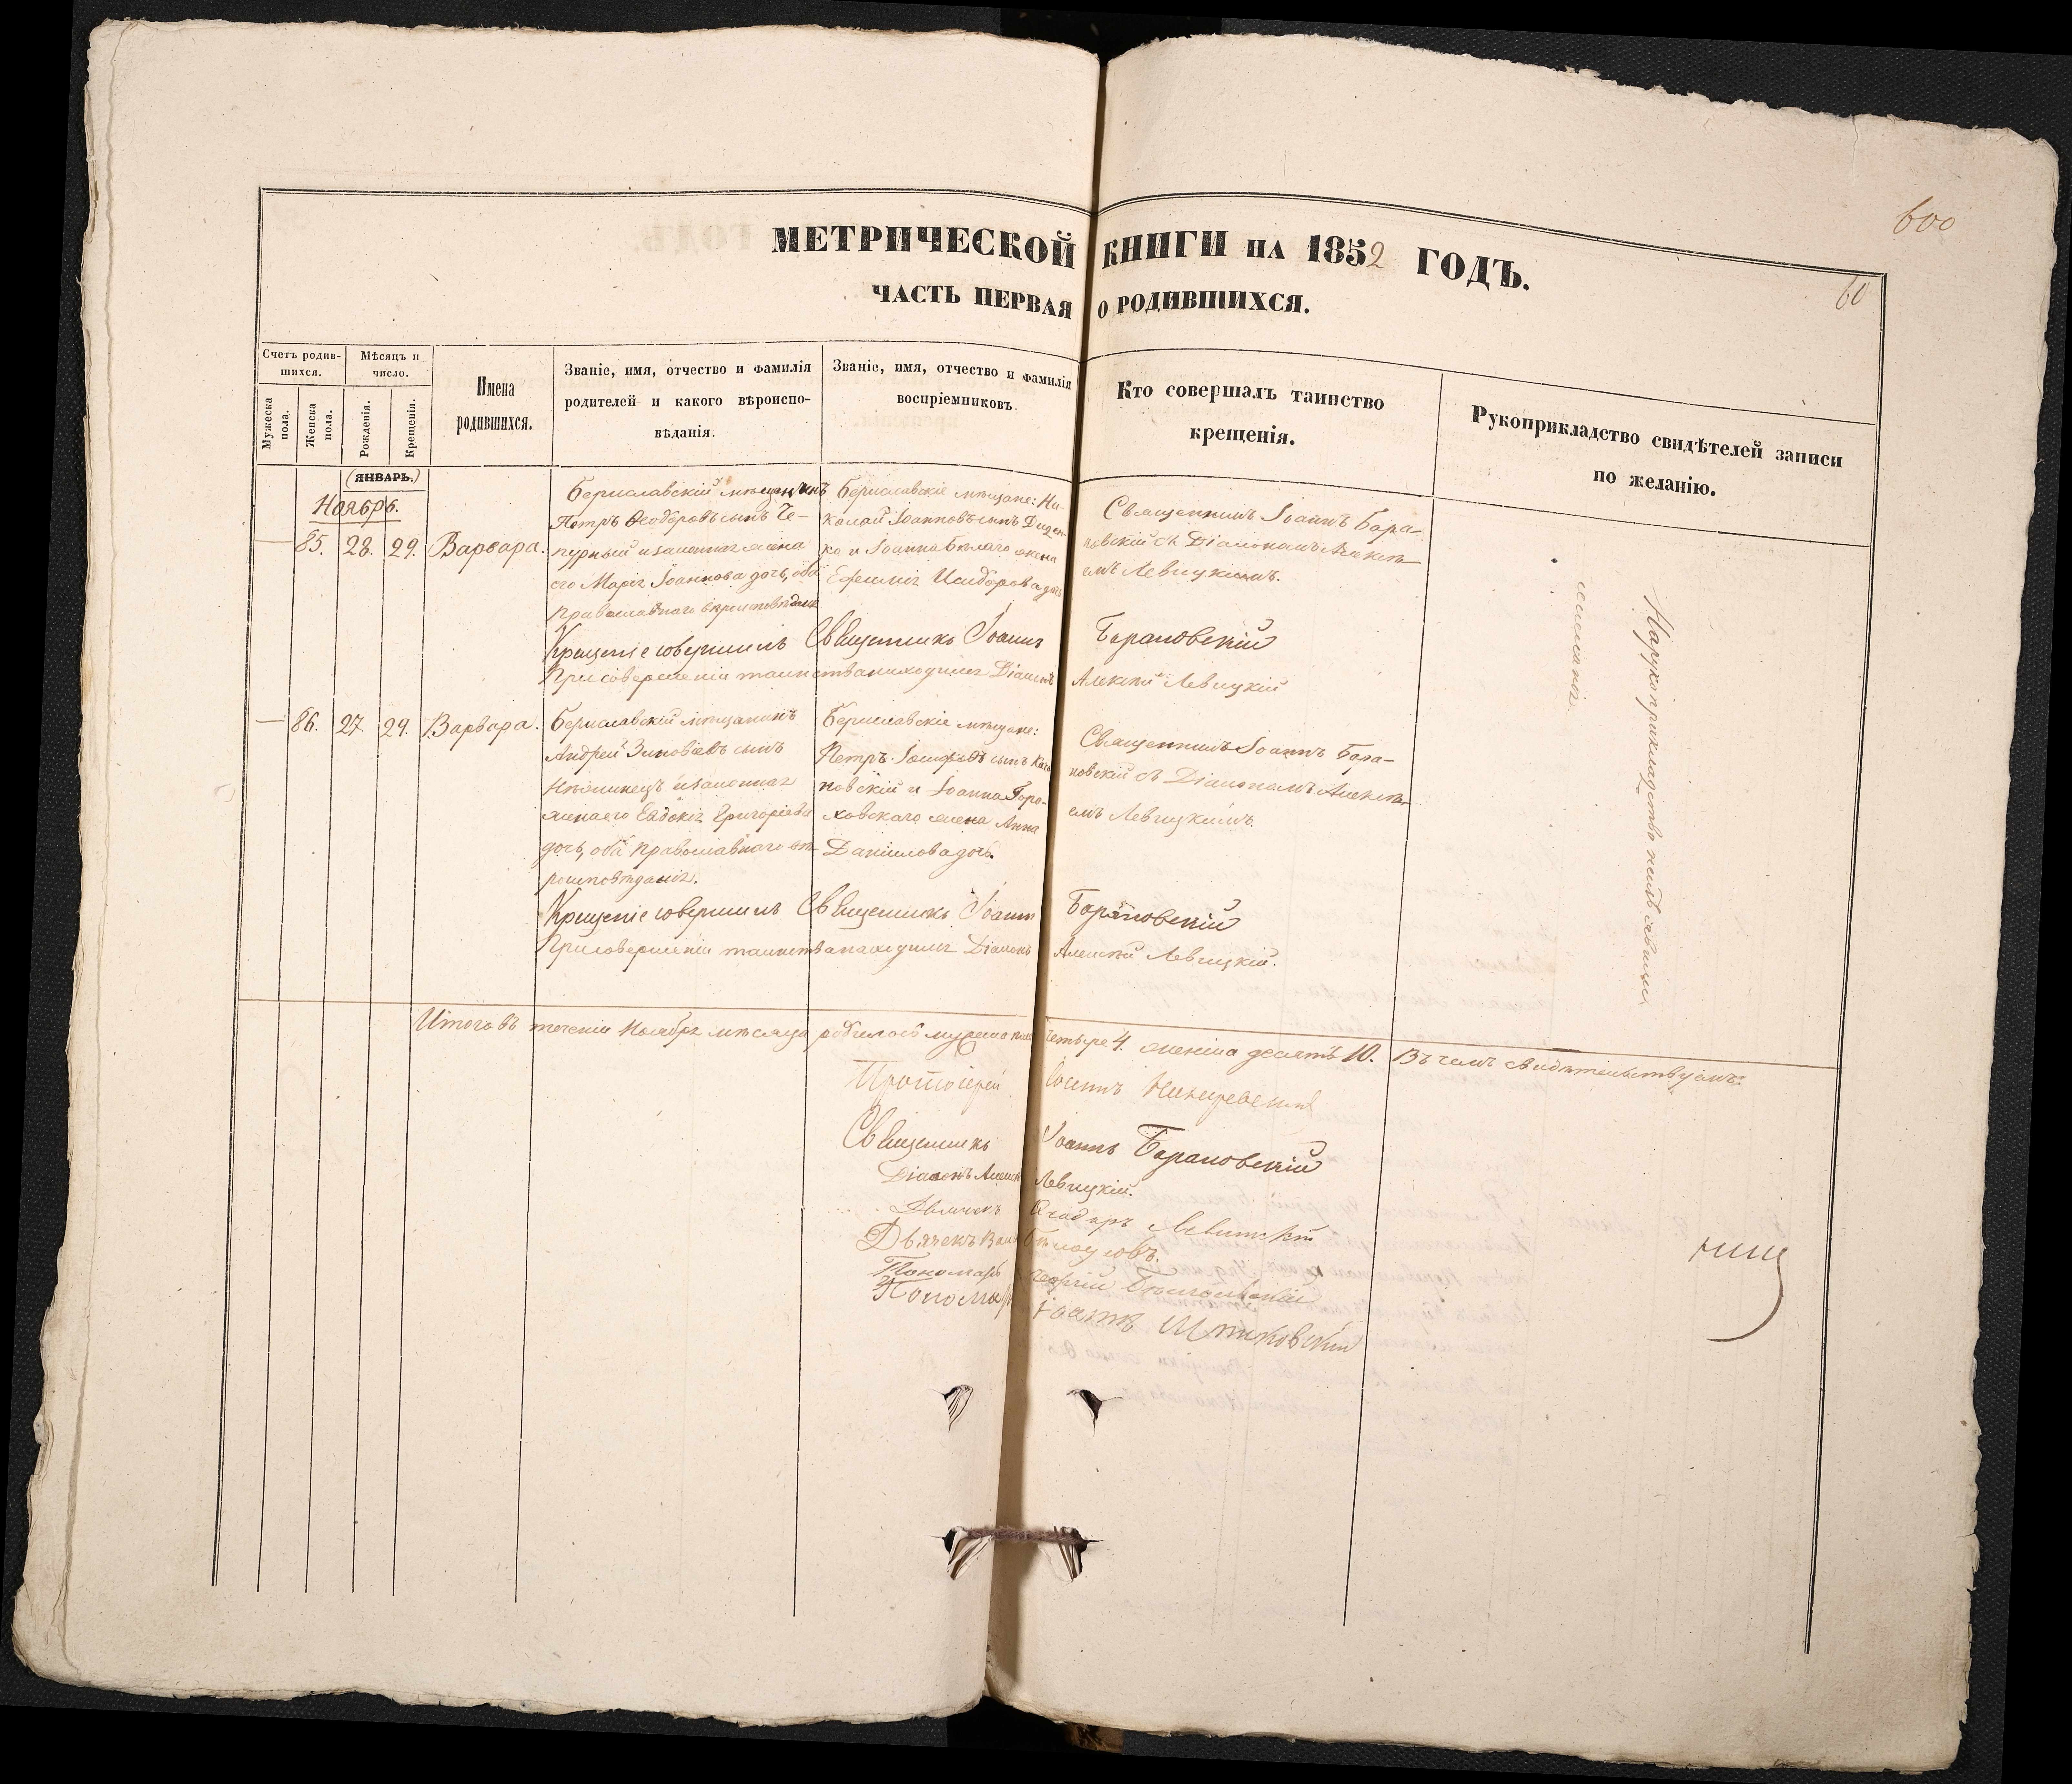 600
60
МЕТРИЧЕСКОЙ КНИГИ НА 1852 ГОДЪ.
ЧАСТЬ ПЕРВАЯ О РОДИВШИХСЯ.
Счетъ родив-
шихся.
Мѣсяцъ и
число.
Мужеска
пола.
Женска
пола.
Рожденія.
Крещенія.
Имена
родившихся.
Званіе, имя, отчество и фамилія
родителей и какого вѣроиспо-
вѣданія.
Званіе, имя, отчество и фамилія
воспріемниковъ.
Кто совершалъ таинство
крещенія.
Рукоприкладство свидѣтелей записи
по желанію.
(ЯНВАРЬ.)
Ноябрь.
— 85. 28. 29. Варвара.
Бериславскій мѣщанинъ
Петръ Ѳеодоровъ сынъ Че-
пурный и законная жена
его Марія Іоаннова дочь, оба
православнаго вѣроисповѣданія
Бериславскіе мѣщане: Ни-
колай Іоанновъ сынъ Диден-
ко и Іоанна Бѣлаго жена
Ефимія Исидорова дочь
Священникъ Іоаннъ Бара-
новскій съ Діакономъ Алексѣ-
емъ Левицкимъ.
Крещеніе совершилъ Священникъ Іоаннъ Барановскій
При совершеніи таинства находился Діаконъ Алексѣй Левицкій
— 86. 27. 29. Варвара.
Бериславскій мѣщанинъ
Андрей Зиновіевъ сынъ
Нѣминецъ и законная
жена его Евдокія Григоріева
дочь, оба православнаго вѣ-
роисповѣданія.
Бериславскіе мѣщане:
Петръ Іосифовъ сынъ
новскій и Іоанна Горо-
ховскаго жена Анна
Даніилова дочь.
Священникъ Іоаннъ Бара-
новскій съ Діакономъ Алексѣ-
емъ Левицкимъ.
Крещеніе совершилъ Священникъ Іоаннъ Барановскій
При совершеніи таинства находился Діаконъ Алексѣй Левицкій.
Итого въ теченіи Ноября мѣсяца родилось мужеска пола четыре 4. женска десять 10. Въ чемъ свидѣтельствуемъ:
Протоіерей
Священникъ Іоаннъ Барановскій
Діаконъ Алексѣй Левицкій.
Дьячекъ Ѳеодоръ
Дьячекъ
Пономарь Георгій
Пономарь Іоаннъ